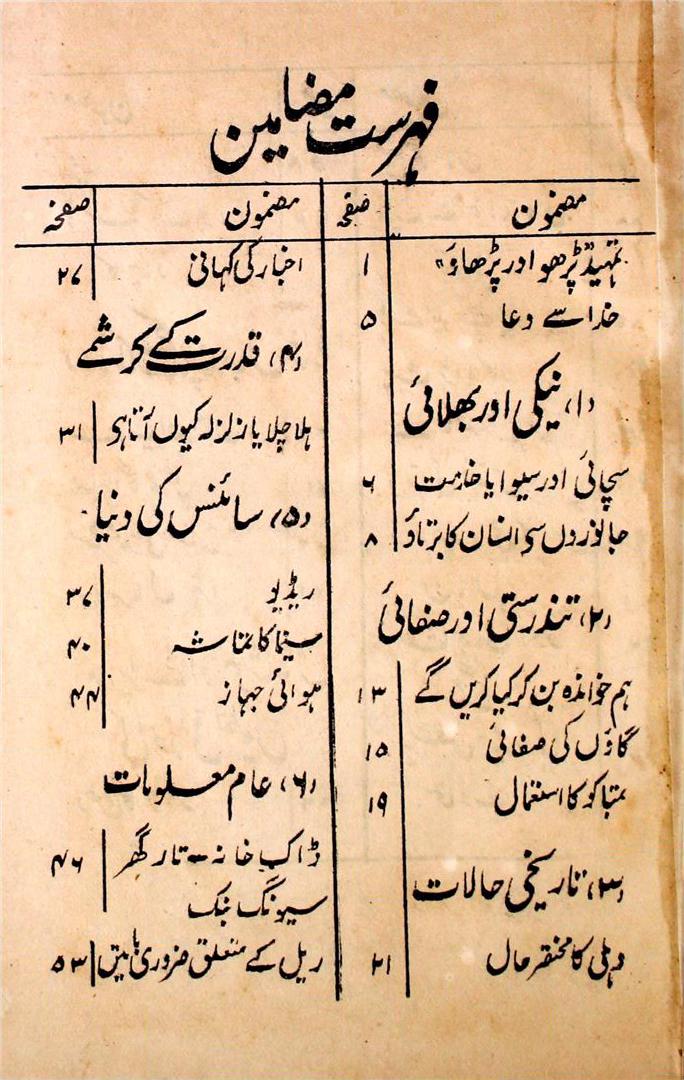 فہرست مضامین
مضمون صفحہ
تمہید "پڑھو اور پڑھاؤ" ۱
خدا سے دعا ۵
(۱) نیکی اور بھلائی
سچائی اور سیوا یا خدمت ۶
جانوروں سے انسان کا برتاؤ ۸
(۲) تندرستی اور صفائی
ہم خواندہ بن کر کیا کریں گے ۱۳
گاؤں کی صفائی ۱۵
تمباکو کا استعمال ۱۹
(۳) تاریخی حالات
دہلی کا مختصر حال ۲۱
مضمون صفحہ
اخبار کی کہانی ۲۷
(۴) قدرت کے کرشمے
ہلا چلا یا زلزلہ کیوں آتا ہی ۳۱
(۵) سائنس کی دنیا
ریڈیو ۳۷
سینما کا تماشہ ۴۰
ہوائی جہاز ۴۴
(۶) عام معلومات
ڈاک خانہ - تار گھر ۴۶
سیونگ بنک
ریل کے متعلق ضروری باتیں ۵۳